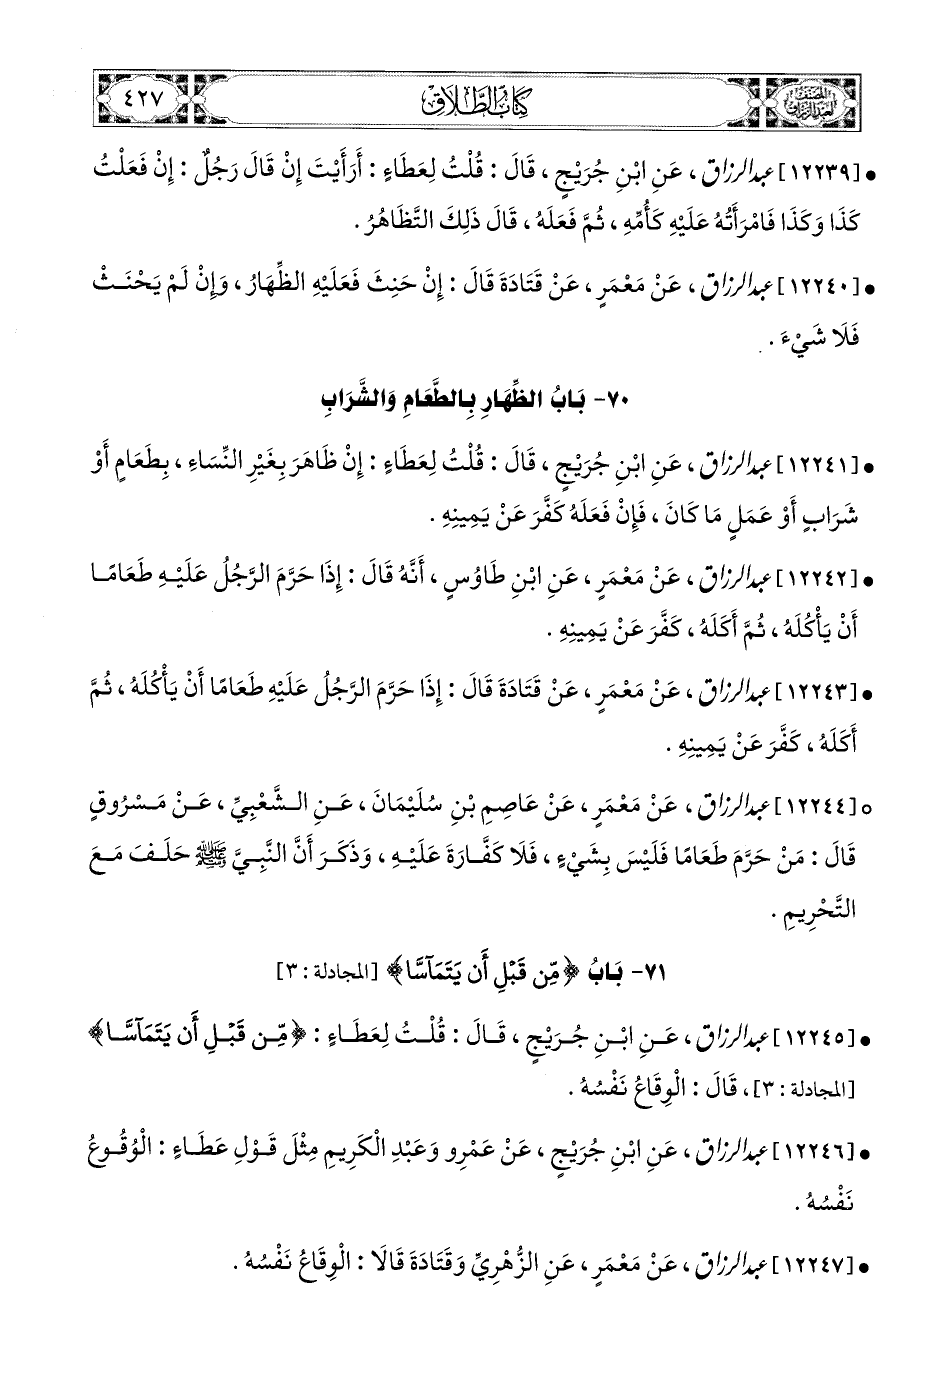 المصنف لعبد الرزاق
كتاب الطلاق
٤٢٧
• [١٢٢٣٩] عبد الرزاق، عَنِ ابْنِ جُرَيْجٍ، قَالَ: قُلْتُ لِعَطَاءٍ: أَرَأَيْتَ إِنْ قَالَ رَجُلٌ: إِنْ فَعَلْتُ
كَذَا وَكَذَا فَامْرَأَتُهُ عَلَيْهِ كَأُمِّهِ، ثُمَّ فَعَلَهُ، قَالَ ذَلِكَ التَّظَاهُرُ.
• [١٢٢٤٠] عبد الرزاق، عَنْ مَعْمَرٍ، عَنْ قَتَادَةَ قَالَ: إِنْ حَنِثَ فَعَلَيْهِ الظِّهَارُ، وَإِنْ لَمْ يَحْنَثْ
فَلَا شَيْءَ.
٧٠- بَابُ الظِّهَارِ بِالطَّعَامِ وَالشَّرَابِ
• [١٢٢٤١] عبد الرزاق، عَنِ ابْنِ جُرَيْجٍ، قَالَ: قُلْتُ لِعَطَاءٍ: إِنْ ظَاهَرَ بِغَيْرِ النِّسَاءِ، بِطَعَامٍ أَوْ
شَرَابٍ أَوْ عَمَلٍ مَا كَانَ، فَإِنْ فَعَلَهُ كَفَّرَ عَنْ يَمِينِهِ.
• [١٢٢٤٢] عبد الرزاق، عَنْ مَعْمَرٍ، عَنِ ابْنِ طَاوُسٍ، أَنَّهُ قَالَ: إِذَا حَرَّمَ الرَّجُلُ عَلَيْهِ طَعَامًا
أَنْ يَأْكُلَهُ، ثُمَّ أَكَلَهُ، كَفَّرَ عَنْ يَمِينِهِ.
• [١٢٢٤٣] عبد الرزاق، عَنْ مَعْمَرٍ، عَنْ قَتَادَةَ قَالَ: إِذَا حَرَّمَ الرَّجُلُ عَلَيْهِ طَعَامًا أَنْ يَأْكُلَهُ، ثُمَّ
أَكَلَهُ، كَفَّرَ عَنْ يَمِينِهِ.
○ [١٢٢٤٤] عبد الرزاق، عَنْ مَعْمَرٍ، عَنْ عَاصِمِ بْنِ سُلَيْمَانَ، عَنِ الشَّعْبِيِّ، عَنْ مَسْرُوقٍ
قَالَ: مَنْ حَرَّمَ طَعَامًا فَلَيْسَ بِشَيْءٍ، فَلَا كَفَّارَةَ عَلَيْهِ، وَذَكَرَ أَنَّ النَّبِيَّ ﷺ حَلَفَ مَعَ
التَّحْرِيمِ.
٧١- بَابُ ﴿مِّن قَبْلِ أَن يَتَمَآسَّا﴾ [المجادلة: ٣]
• [١٢٢٤٥] عبد الرزاق، عَنِ ابْنِ جُرَيْجٍ، قَالَ: قُلْتُ لِعَطَاءٍ: ﴿مِّن قَبْلِ أَن يَتَمَآسَّا﴾
[المجادلة: ٣]، قَالَ: الْوِقَاعُ نَفْسُهُ.
• [١٢٢٤٦] عبد الرزاق، عَنِ ابْنِ جُرَيْجٍ، عَنْ عَمْرٍو وَعَبْدِ الْكَرِيمِ مِثْلَ قَوْلِ عَطَاءٍ: الْوُقُوعُ
نَفْسُهُ.
• [١٢٢٤٧] عبد الرزاق، عَنْ مَعْمَرٍ، عَنِ الزُّهْرِيِّ وَقَتَادَةَ قَالَا: الْوِقَاعُ نَفْسُهُ.